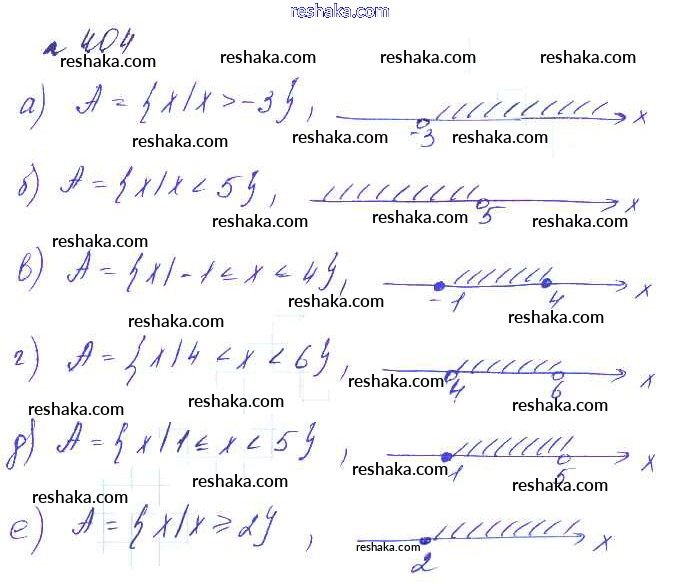 reshaka.com
№ 404
reshaka.com reshaka.com reshaka.com
а) A = {x|x > -3}, -3 x
reshaka.com reshaka.com reshaka.com
б) A = {x|x < 5}, 5 x
reshaka.com reshaka.com reshaka.com
reshaka.com
в) A = {x|-1 ≤ x ≤ 4}, -1 4 x
reshaka.com
reshaka.com reshaka.com
г) A = {x|4 < x < 6}, 4 6 x
reshaka.com
reshaka.com reshaka.com
reshaka.com
д) A = {x|1 ≤ x < 5}, 1 5 x
reshaka.com
reshaka.com reshaka.com
reshaka.com
е) A = {x|x ≥ 2}, 2 x
reshaka.com
reshaka.com